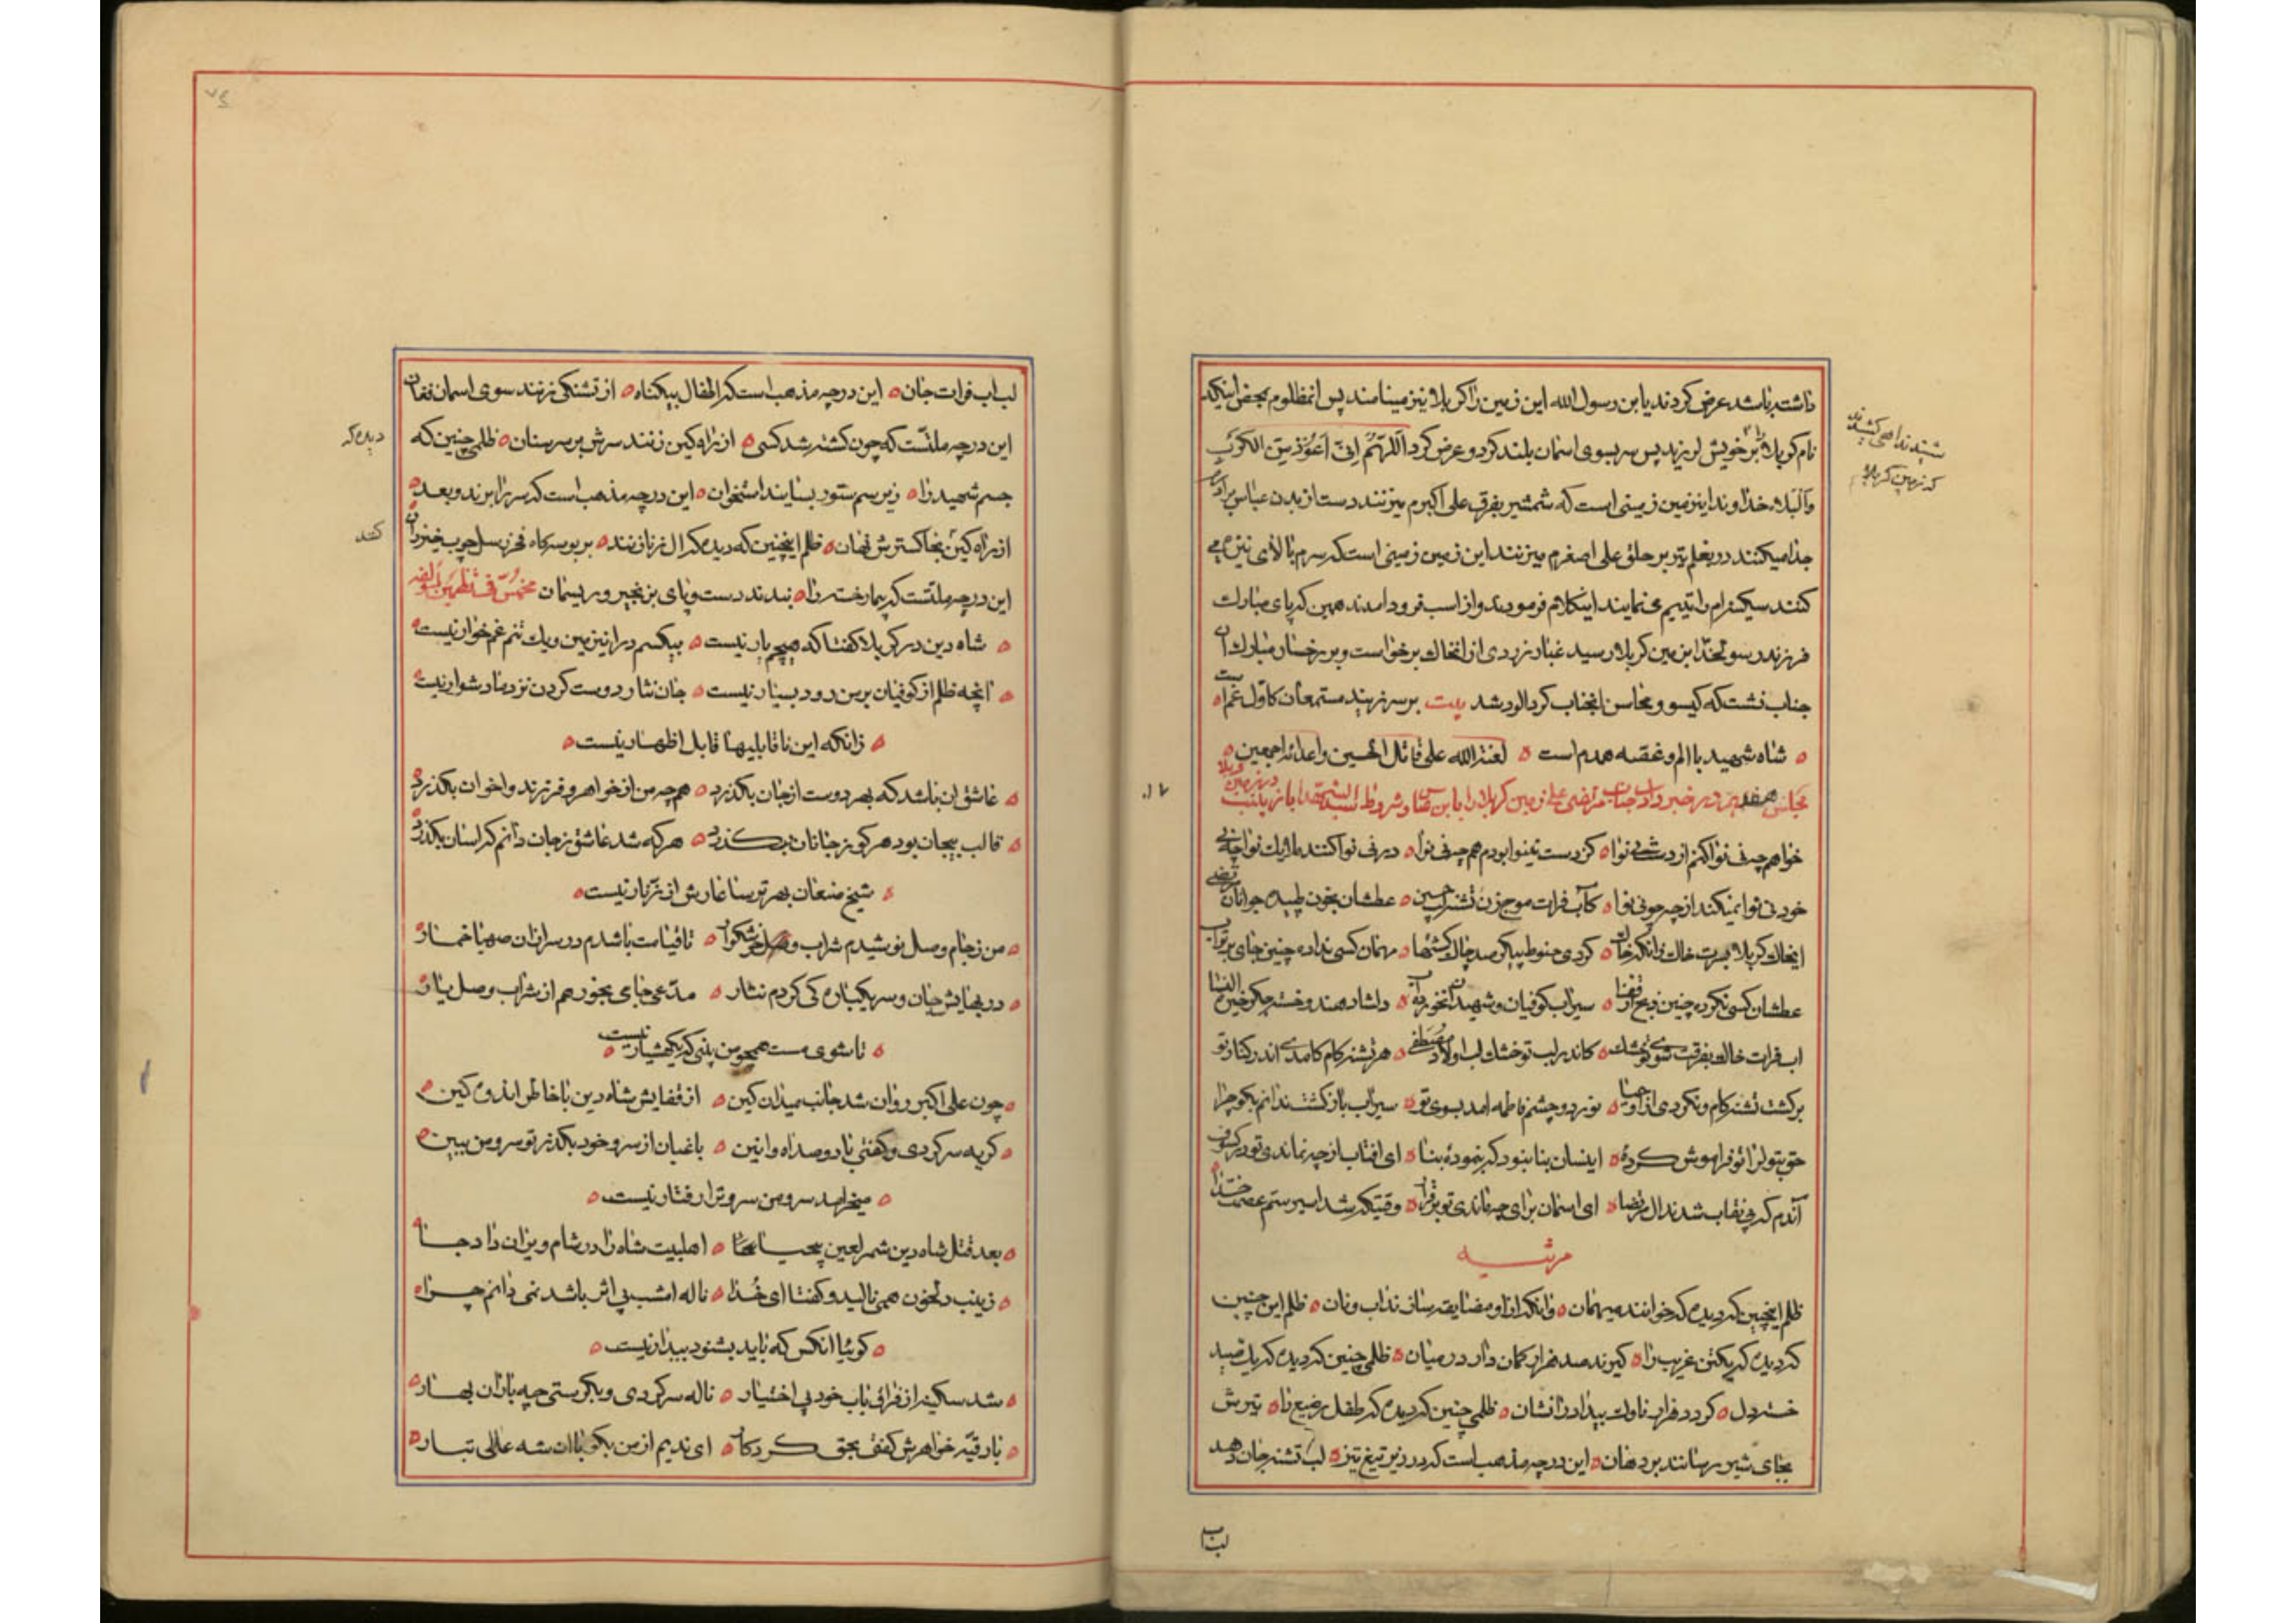 داشته باشد عرض کردند یابن رسول الله این زمین را کربلا نیز مینامند پس انمظلوم بمحض اینکه
نام کربلا بر خویش لرزید پس سر بسوی اسمان بلند کرد و عرض کرد اَللّهُمَّ اِنّی اَعُوذُ مِنَ الکَربِ
وَالبَلاء خداوندا اینزمین زمینی است که شمشیر بفرق علی اکبرم میزنند دست از بدن عباس برادرم
جدا میکنند در بغلم تیر بر حلق علی اصغرم میزنند این زمین زمینی است که سرم بالای نیزه می
کنند سکینه‌ام را یتیم می‌نمایند اینکلام فرمودند و از اسب فرود امدند همین که پای مبارک
فرزند رسولخدا بزمین کربلا رسید غبار زردی از انخاک برخواست و بر رخسار مبارک آن
جناب نشست که گیسو و محاسن انجناب گرد الود شد بیت بر سر زنید مستمعان کاول غم است
شاه شهید با الم و غصه همدم است لعنة الله علی قاتل الحسین و اعدائه اجمعین
شنیدند اهی کشیدند
که زمین کربلا
مجلس هفدهم در خبر دادن جناب مرتضی علی زمین کربلا را بابن عباس
خواهم چه نی نوا کنم از دشت نی نوا کز دست نینوا بودم همچه نی نوا در نی نوا کنند ملایک نوا چه نی
خود نی نوا نمیکند از چه چو نی نوا کآب فرات موج زن تشنه لب حسین عطشان بخون طپیده جوانان مرتضی
ایخاک کربلا بسرت خاک زانکه کردی حنوط پیکر صد چاک کشتها مهمان کسی نداده چنین جای بر تراب
عطشان کسی نکرده چنین ذبح از قفا سیراب کوفیان و شهیدان نخورده آب دلشاد هند و خسته جگر خیر النسا
اب فرات خاک بفرقت شوی تو خشک کاندر لب تو خشک لب اولاد مصطفی هر تشنه کام کامدی اندر کنار تو
برکشت تشنه کام و نکردی از او حیا نور دو چشم فاطمه امد بسوی تو سیراب باز کشت ندانم بکو چرا
حق بتول را تو فراموش کردهٔ اینسان بنا نبود که بنمودهٔ بنا ای افتاب از چه نماندی تو در کسوف
آندم که بی نقاب شدند ال مرتضا ای اسمان برای چه ماندی تو برقرار وقتیکه شد اسیر ستم عصمت خدا
مرثیه
ظلم اینچنین که دیده که خوانند میهمان وانکه از او مضایقه سازند اب و نان ظلم این چنین
که دیده که یکتن غریب را گیرند صد هزار کمان دار در میان ظلمی چنین که دیده که یک صید
خسته دل گردد هزار ناوک بیداد را نشان ظلمی چنین که دیده که طفل رضیع را تیرش
بجای شیر رسانند بر دهان این در چه مذهب است که در زیر تیغ تیز لب تشنه جان دهد
لب اب
لب اب فرات جان این در چه مذهب است که اطفال بیکناه از تشنکی زنند سوی اسمان فغان
این در چه ملتست که چون کشته شد کسی از راه کین زنند سرش بر سر سنان ظلمی چنین که
دیده که
جسم شهید را زیر سم ستور بسایند استخوان این در چه مذهب است که سر را برند و بعد
از راه کین بخاکسترش نهان ظلم اینچنین که دیده
کنند
این در چه ملتست که بیمار خسته را بندند دست و پای بزنجیر و ریسمان
شاه دین در کربلا کفتا که هیچم یار نیست بیکسم در اینزمین و یک تنم غم خوار نیست
انچه ظلم از کوفیان بر من رود بسیار نیست جان نثار دوست کردن نزد ما دشوار نیست
زانکه این ناقابلیها قابل اظهار نیست
عاشق ان باشد که بهر دوست از جان بکذرد همچه من از خواهر و فرزند و اخوان بکذرد
قالب بیجان بود هر کو ز جانان بکذرد هر که شد عاشق ز جان دانم که اسان بکذرد
شیخ صنعان بهر ترسا عارش از زنّار نیست
من ز جام وصل نوشیدم شراب وصل خوشکوار تا قیامت باشدم در سر ازان صهبا خمار
در بهایش جان و سر یکباره کی کردم نثار مدّعی جامی بخور هم از شراب وصل یار
تا شوی مست همچو من بینی که یکهشیار نیست
چون علی اکبر روان شد جانب میدان کین از قفایش شاه دین با خاطر اندوه کین
کریه سر کردی و کفتی با دو صد اه و انین باغبان از سرو خود بکذر تو سرو من ببین
میخرامد سرو من سرو ترا رفتار نیست
بعد قتل شاه دین شمر لعین بیحیا اهلبیت شاه را در شام ویران داد جا
زینب دلخون همی نالید و کفتا ای خدا ناله امشب بی اثر باشد نمی دانم چرا
کوئیا انکس که باید بشنود بیدار نیست
شد سکینه از فراق باب خود بی اختیار ناله سر کردی و بکرستی چه باران بهار
با رقیّه خواهرش کفتی ای ندیم از من بکو با ان شه عالی تبار